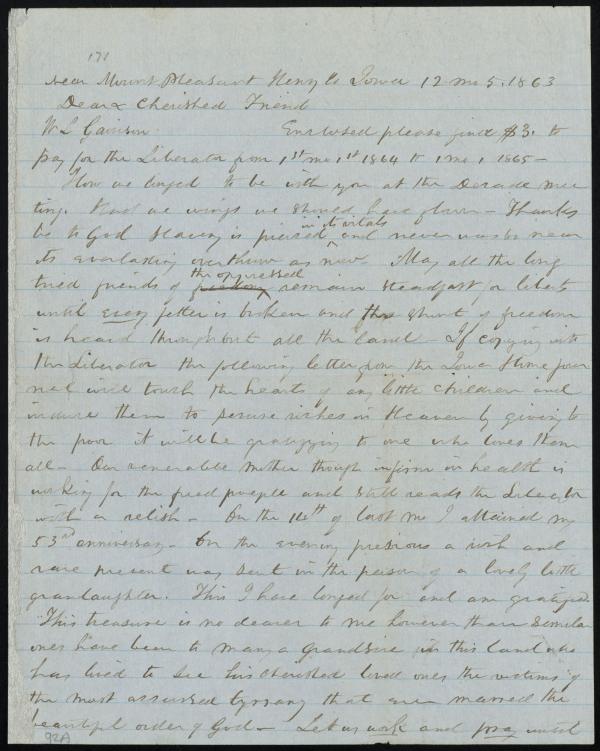 171
Near Mount Pleasant Henry Co Iowa 12 mo 5. 1863
Dear & Cherished Friend
W L Garrison. Enclosed please find $3. to
pay for the Liberator from 1st mo 1st 1864 to 1 mo 1 1865 –
How we longed to be with you at the Decade mee
ting. Had we wings we should have flown – Thanks
be to God Slavery is pierced in its vitals and never was so near
its everlasting overthrow as now. May all the long
tried friends of the oppressed remain steadfast for liberty
until every fetter is broken and the shout of freedom
is heard throughout all the land – If copying into
the Liberator the following letter from the Iowa Home jour
nal will touch the hearts of any little children and
induce them to secure riches in Heaven by giving to
the poor it will be gratifying to one who loves them
all – Our venerable mother though infirm in health is
working for the freed people and still reads the Liberator
with a relish – On the 14th of last mo I attained my
53rd anniversary – On the evening previous a rich and
rare present was sent in the person of a lovely little
grandaughter. This I have longed for and am gratified.
This treasure is no dearer to me however than similar
ones have been to many a grandsire in this land who
has lived to see his cherished loved ones the victims of
the most accursed tyranny that ever marred the
beautiful order of God – Let us work and pray until
92A